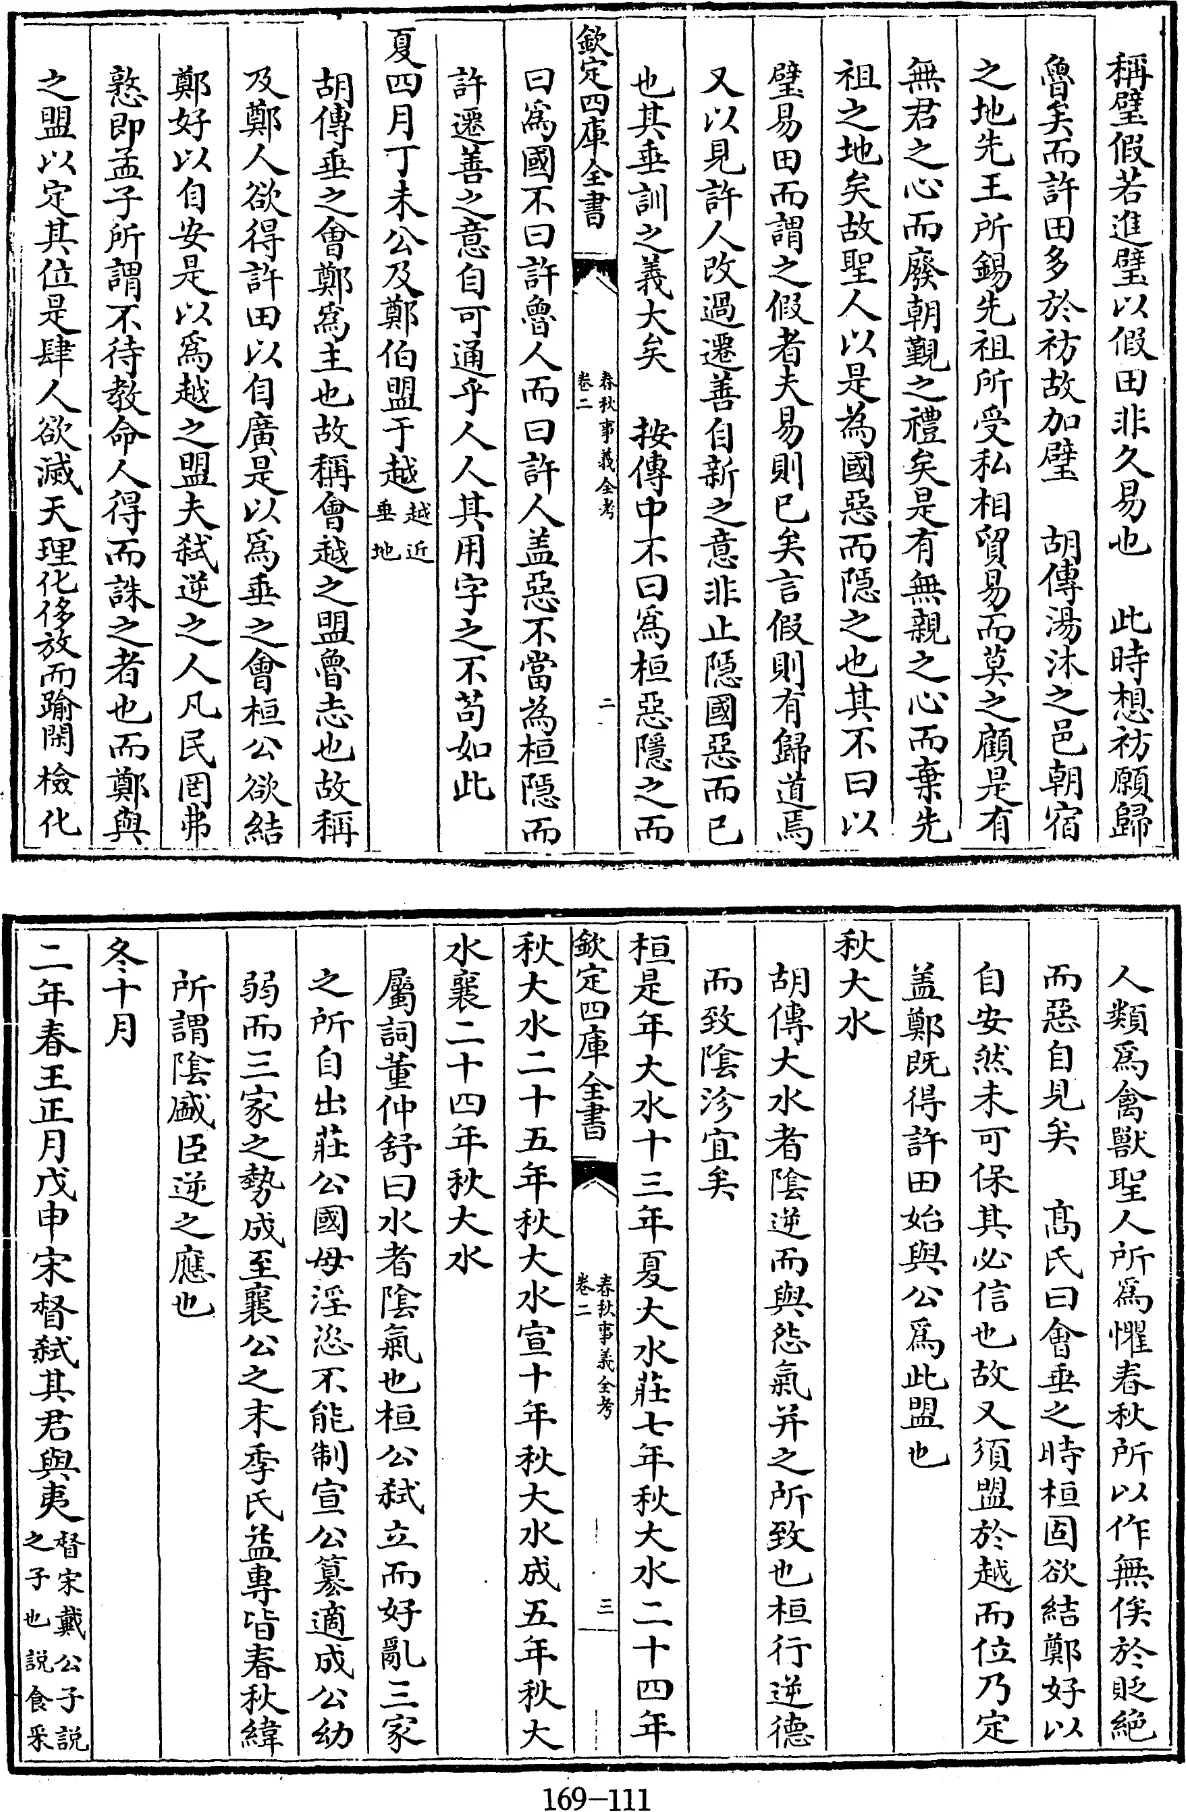 稱璧假若進璧以假田非久易也　此時想祊願歸
魯矣而許田多於祊故加璧　胡傳湯沐之邑朝宿
之地先王所錫先祖所受私相貿易而莫之顧是有
無君之心而廢朝覲之禮矣是有無親之心而棄先
祖之地矣故聖人以是為國惡而隱之也其不曰以
璧易田而謂之假者夫易則已矣言假則有歸道焉
又以見許人改過遷善自新之意非止隱國惡而已
也其垂訓之義大矣　按傳中不曰為桓惡隱之而
欽定四庫全書
春秋事義全考
卷二
二
曰為國不曰許魯人而曰許人盖惡不當為桓隱而
許遷善之意自可通乎人人其用字之不苟如此
夏四月丁未公及鄭伯盟于越越近
垂地
胡傳垂之會鄭為主也故稱會越之盟魯志也故稱
及鄭人欲得許田以自廣是以為垂之會桓公欲結
鄭好以自安是以為越之盟夫弑逆之人凡民罔弗
憝即孟子所謂不待教命人得而誅之者也而鄭與
之盟以定其位是肆人欲滅天理化侈放而踰閑檢化
人類為禽獸聖人所為懼春秋所以作無俟於貶絶
而惡自見矣　髙氏曰會垂之時桓固欲結鄭好以
自安然未可保其必信也故又須盟於越而位乃定
盖鄭既得許田始與公為此盟也
秋大水
胡傳大水者陰逆而與怨氣并之所致也桓行逆德
而致陰沴宜矣
桓是年大水十三年夏大水莊七年秋大水二十四年
欽定四庫全書
春秋事義全考
卷二
三
秋大水二十五年秋大水宣十年秋大水成五年秋大
水襄二十四年秋大水
屬詞董仲舒曰水者陰氣也桓公弑立而好亂三家
之所自出莊公國母淫恣不能制宣公簒適成公幼
弱而三家之勢成至襄公之末季氏益專皆春秋緯
所謂陰盛臣逆之應也
冬十月
二年春王正月戊申宋督弑其君與夷督宋戴公子說
之子也說食采
169-111